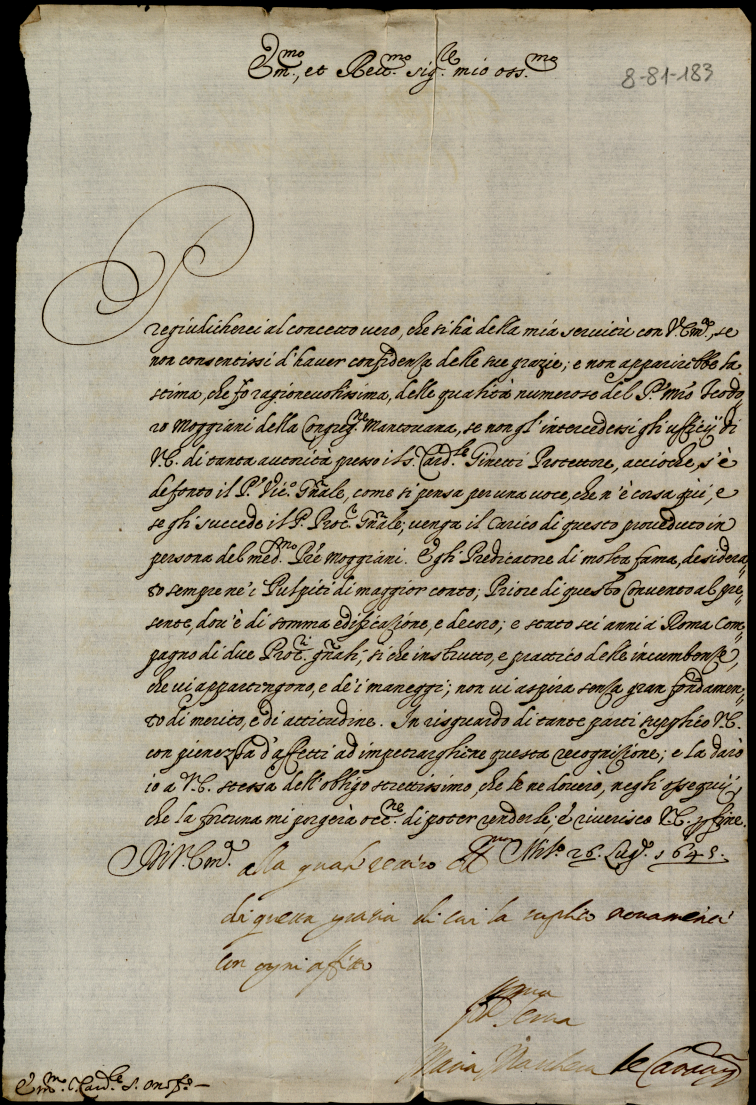 Em.mo et Reu.mo sig.re mio oss.mo
8-81-183
Pregiudicherei al concetto uero, che si hà della mia seruitù con V. Em.a, se
non consentissi d'hauer confidenza delle sue grazie; e non apparirebbe la
stima, che fo ragioneuolissima, delle qualità numerose del P. Mro Teodo,
ro Moggiani della Congreg.ne Mantouana, se non gl'intercedessi gli ufficij di
V. E. di tanta autorità presso il s. Card.le Ginetti Protettore, accioche, s'è
defonto il P. Vic.o Gñrale, come si pensa per una uoce, che n'è corsa quì, e
se gli succede il P. Proc.re Gñrale; uenga il carico di questo proueduto in
persona del med.mo Prê Moggiani. Egli Predicatore di molta fama, desidera,
to sempre ne'i Pulpiti di maggior conto; Priore di questo Conuento al pre,
sente, dou'è di somma edificazione, e decoro; e stato sei anni à Roma Com,
pagno di due Proc.ri gñrali, si che instrutto, e prattico delle incumbenze,
che ui appartengono, e de'i maneggi; non ui aspira senza gran fondamen,
to di merito, e di attitudine. In risguardo di tante parti supplico V. E.
con pienezza d'affetti ad impetrargliene questa recognizione; e la darò
io a V. E. stessa dell'obligo strettissimo, che le ne douerò, negli ossequij,
che la fortuna mi porgerà occ.ne di poter renderle. E riuerisco V. E. p fine.
Di V. Em.a alla quale Mil.o 26. Lug.o 1645.
di questa gratia di cui la suplico nouamente
con ogni affetto
Serua
Maria
Em.mo s. Card.le S. Onof.o